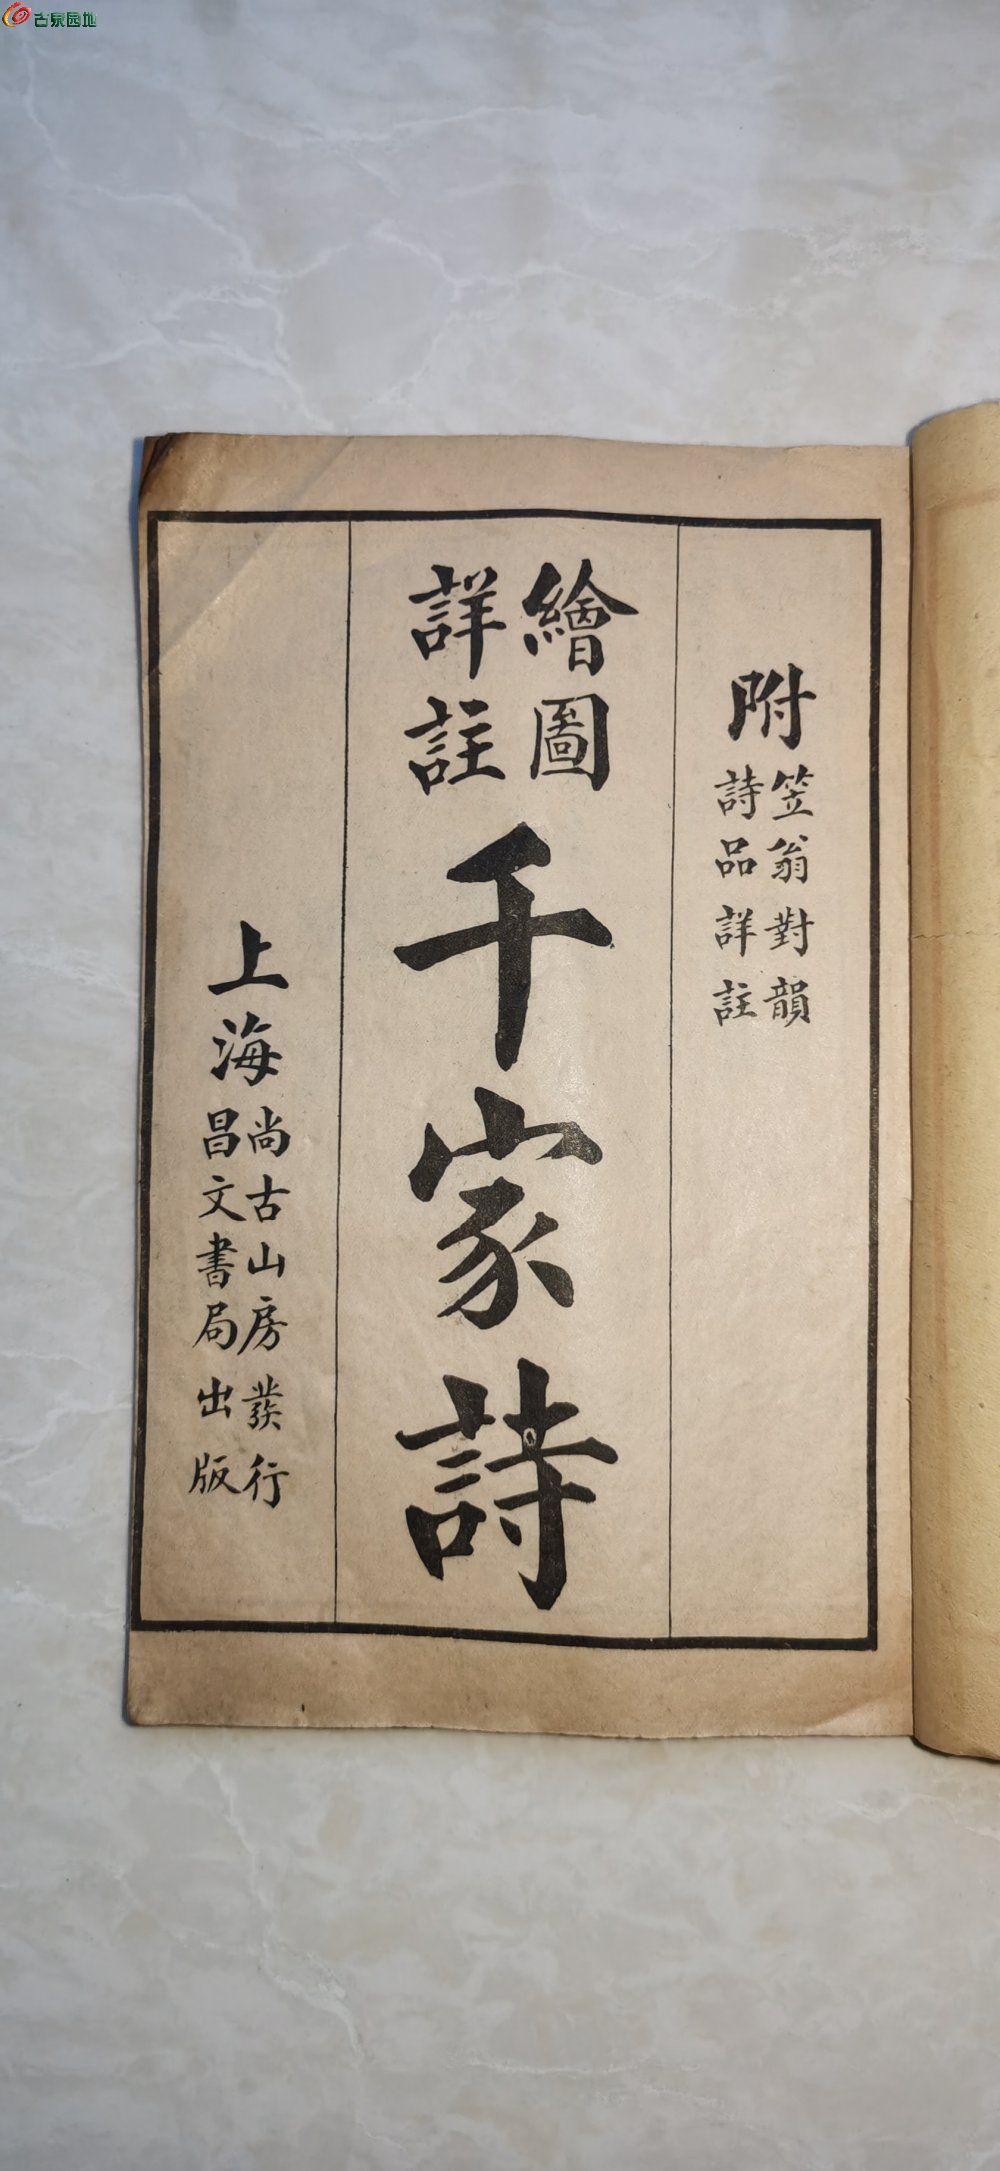 古泉园地
附
笠翁對韻
詩品詳註
繪圖
詳註
千家詩
上海
尚古山房發行
昌文書局出版